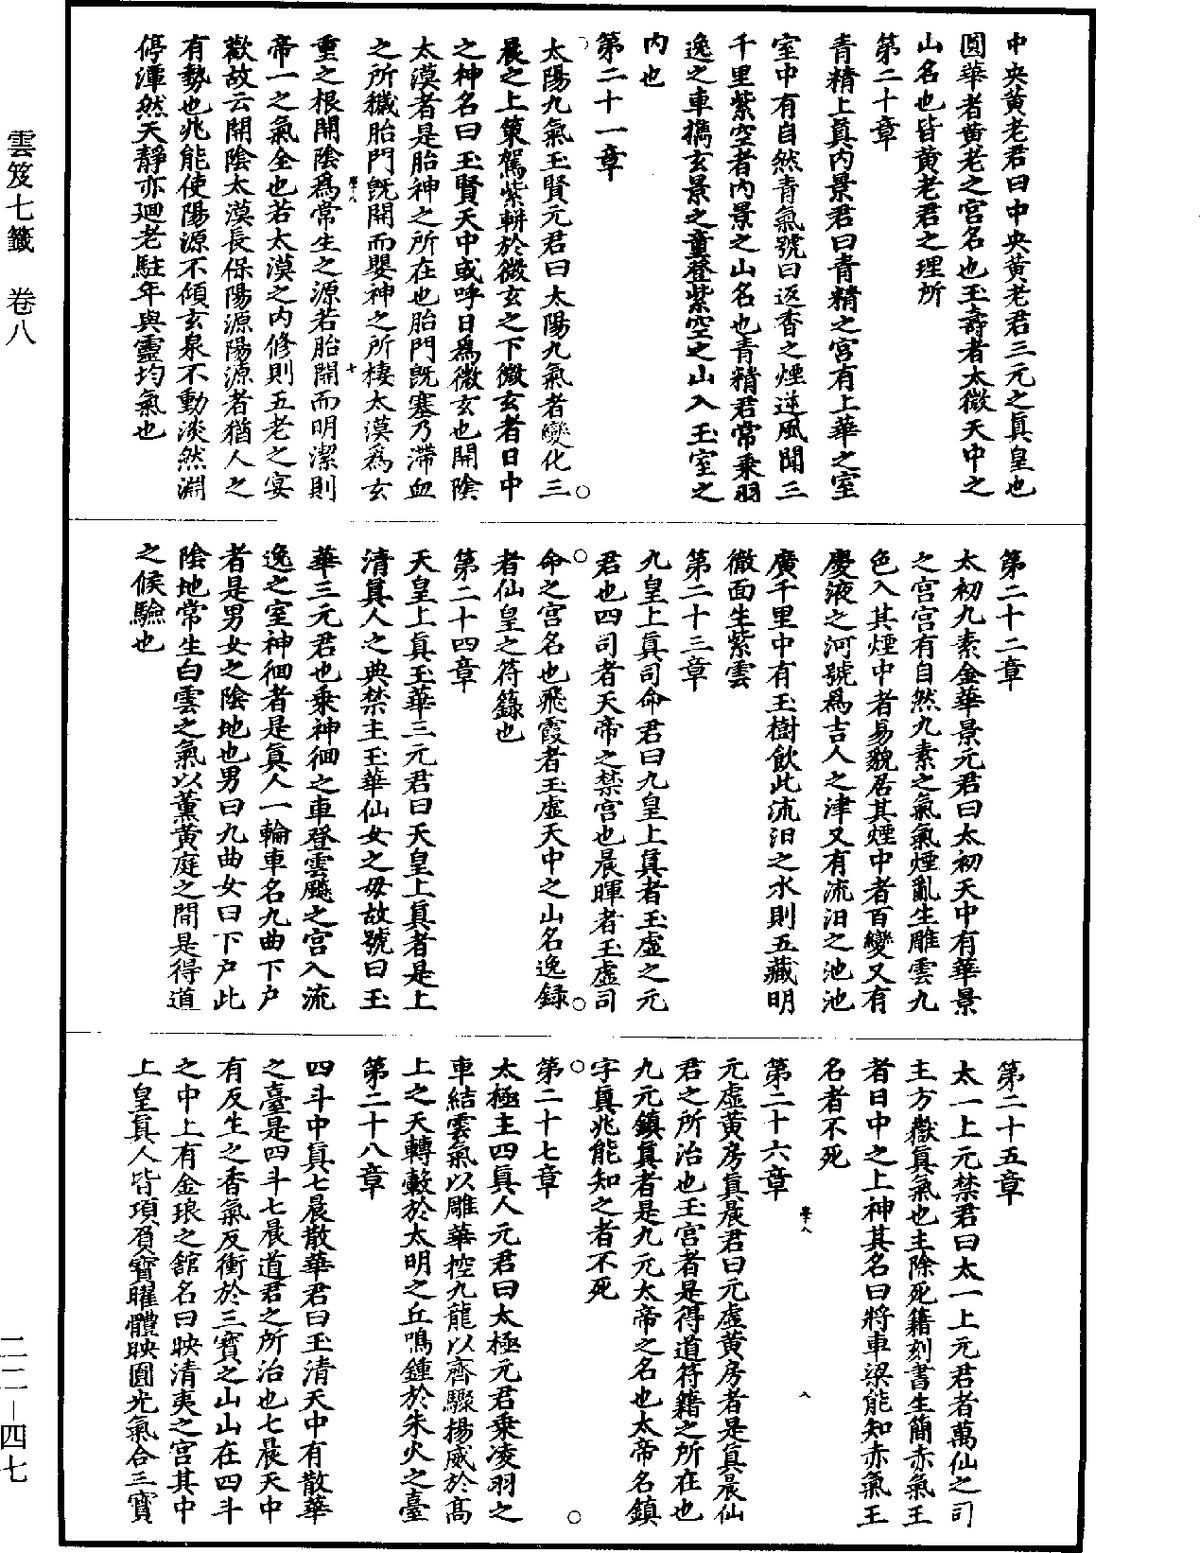 中央黃老君曰中央黃老君三元之真皇也
圓華者黃老之宮名也玉壽者太微天中之
山名也皆黃老君之理所
第二十章
青精上真內景君曰青精之宮有上華之室
室中有自然青氣號曰返香之煙逆風聞三
千里紫空者內景之山名也青精君常乘羽
逸之車攜玄景之童登紫空之山入玉室之
內也
第二十一章
太陽九氣玉賢元君曰太陽九氣者變化三
晨之上策駕紫軿於微玄之下微玄者日中
之神名曰玉賢天中或呼日為微玄也開陰
太漠者是胎神之所在也胎門既塞乃滯血
之所穢胎門既開而嬰神之所棲太漠為玄
學十八
十
重之根開陰為常生之源若胎開而明潔則
帝一之氣全也若太漠之內修則五老之宴
歡故云開陰太漠長保陽源陽源者猶人之
有勢也兆能使陽源不傾玄泉不動淡然淵
停渾然天靜亦迴老駐年與靈均氣也
第二十二章
太初九素金華景元君曰太初天中有華景
之宮宮有自然九素之氣氣煙亂生雕雲九
色入其煙中者易貌居其煙中者百變又有
慶液之河號為吉人之津又有流汨之池池
廣千里中有玉樹飲此流汨之水則五藏明
徹面生紫雲
第二十三章
九皇上真司命君曰九皇上真者玉虛之元
君也四司者天帝之禁宮也晨暉者玉虛司
命之宮名也飛霞者玉虛天中之山名逸録
者仙皇之符籙也
第二十四章
天皇上真玉華三元君曰天皇上真者是上
清真人之典禁主玉華仙女之母故號曰玉
華三元君也乘神徊之車登雲飈之宮入流
逸之室神徊者是真人一輪車名九曲下戶
者是男女之陰地也男曰九曲女曰下戶此
陰地常生白雲之氣以薰黃庭之間是得道
之候驗也
第二十五章
太一上元禁君曰太一上元君者萬仙之司
主方嶽真氣也主除死籍刻書生簡赤氣玉
者日中之上神其名曰將車梁能知赤氣王
名者不死
第二十六章
學八
八
元虛黃房真晨君曰元虛黃房者是真晨仙
君之所治也玉宮者是得道符籍之所在也
九元鎮真者是九元太帝之名也太帝名鎮
字真兆能知之者不死
第二十七章
太極主四真人元君曰太極元君乘凌羽之
車結雲氣以雕華控九龍以齊驟揚威於高
上之天轉轂於太明之丘鳴鍾於朱火之臺
第二十八章
四斗中真七晨散華君曰玉清天中有散華
之臺是四斗七晨道君之所治也七晨天中
有反生之香氣反衝於三寶之山山在四斗
之中上有金琅之舘名曰映清夷之宮其中
上皇真人皆項負寶曜體映圓光氣合三寶
雲笈七籤 卷八
二二—四七